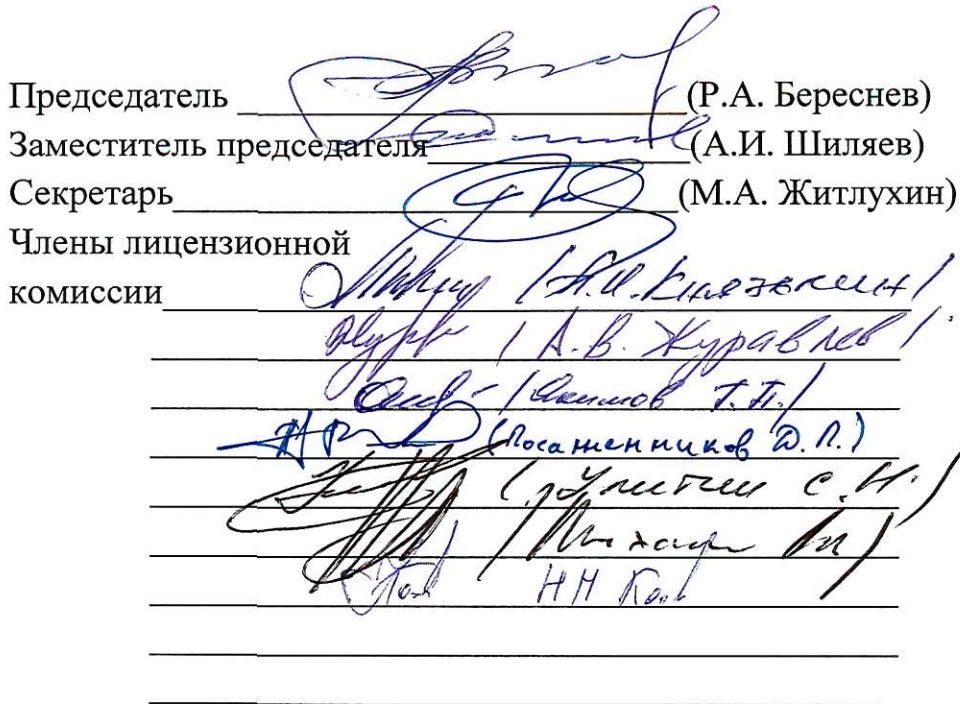 Председатель (Р.А. Береснев)
Заместитель председателя (А.И. Шиляев)
Секретарь (М.А. Житлухин)
Члены лицензионной
комиссии /А.И. Князькин/
/А.В. Журавлев/
/Т.П./
(Посаженников Д.П.)
С.Н./
Н Н